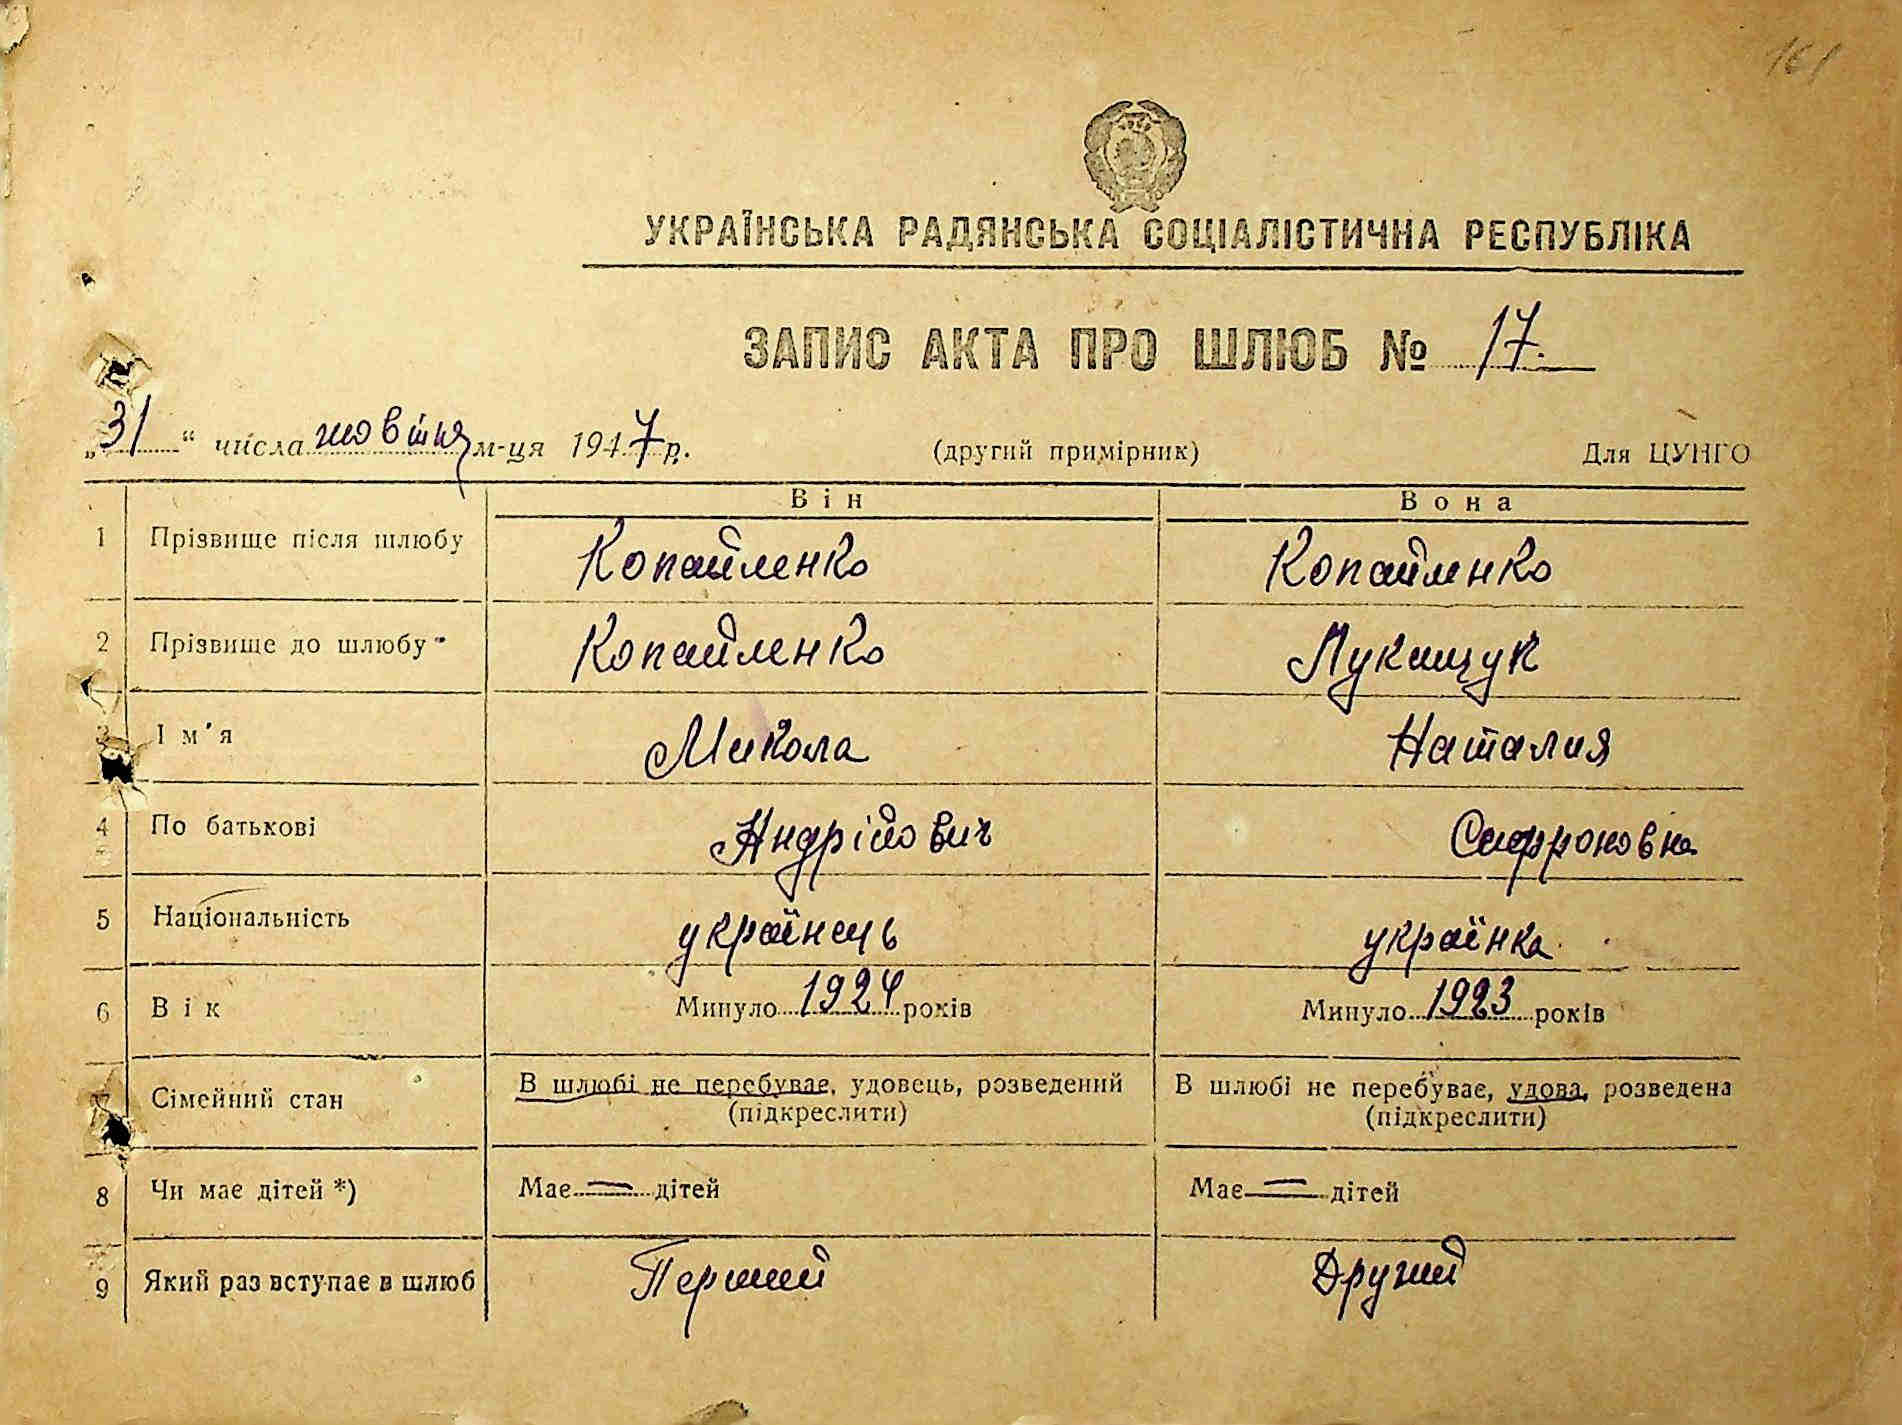 161
УКРАЇНСЬКА РАДЯНСЬКА СОЦІАЛІСТИЧНА РЕСПУБЛІКА
ЗАПИС АКТА ПРО ШЛЮБ № 17.
„31“ числа жовтня м-ця 1947 р. (другий примірник) Для ЦУНГО
Він Вона
1 Прізвище після шлюбу Копайленко Копайленко
2 Прізвище до шлюбу Копайленко Лукащук
3 Ім'я Микола Наталия
4 По батькові Андрійович Сафроновна
5 Національність українець українка
6 Вік Минуло 1924 років Минуло 1923 років
7 Сімейний стан В шлюбі не перебуває, удовець, розведений В шлюбі не перебуває, удова, розведена
(підкреслити) (підкреслити)
8 Чи має дітей *) Має — дітей Має — дітей
9 Який раз вступає в шлюб Перший Другий